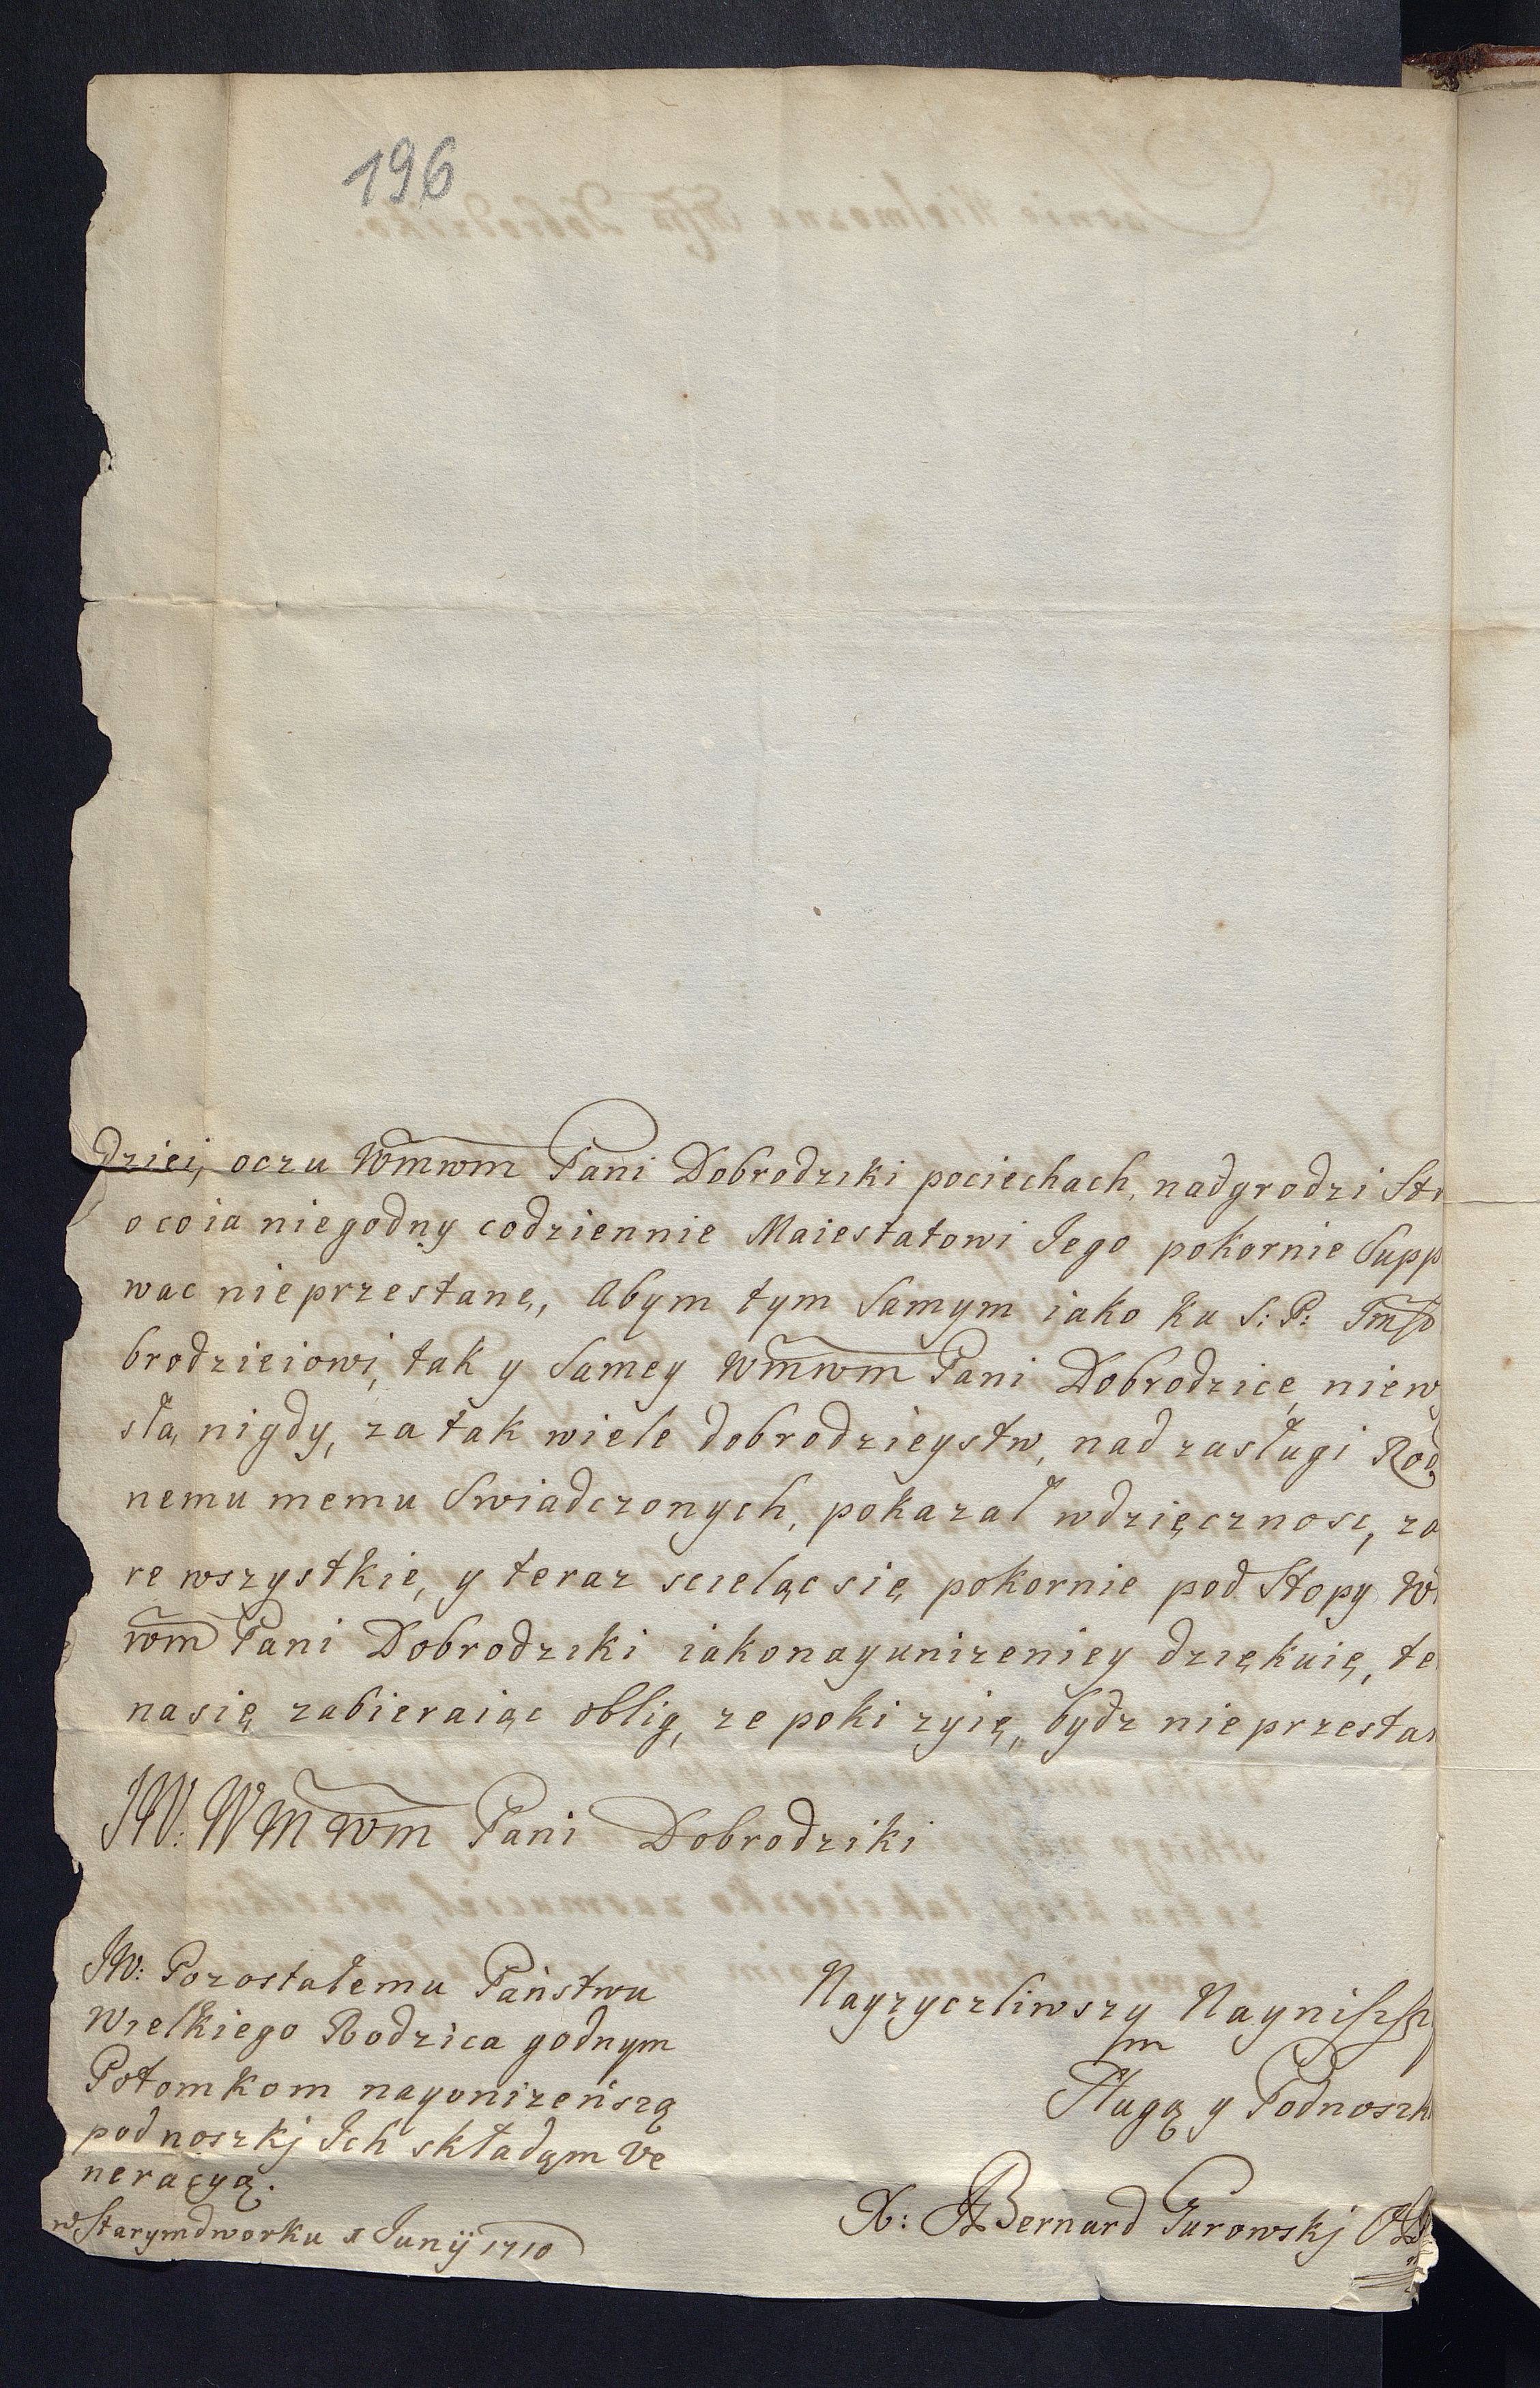 196
dziei, oczu Wmwm Pani Dobrodziki pociechach, nadgrodzi Str
o co ia niegodny codziennie Maiestatowi Jego pokornie Supp
wac nieprzestanę, Abym tym Samym iako ku S: P: Jmś
brodzieiowi, tak y Samey Wmwm Pani Dobrodzice niew
słą nigdy, za tak wiele dobrodzieystw, nad zasługi Rod
nemu memu Swiadczonych, pokazał wdzięcznosc, za
re wszystkie, y teraz scieląc się pokornie pod Stopy W
wm Pani Dobrodziki iako nayunizeniey dziękuię, te
na się zabieraiąc oblig, ze poki zyię, bydz nieprzestan
JW: WMwm Pani Dobrodziki
JW: Pozostałemu Państwu
Wielkiego Rodzica godnym
Potomkom nayunizeńszą
podnoszkj Ich składąm Ve
neracyą.
w Starymdworku 1 Junij 1710
Nayzyczliwszy Nayniszszy
Sługą y Podnoszk
X: Bernard Gurowskj